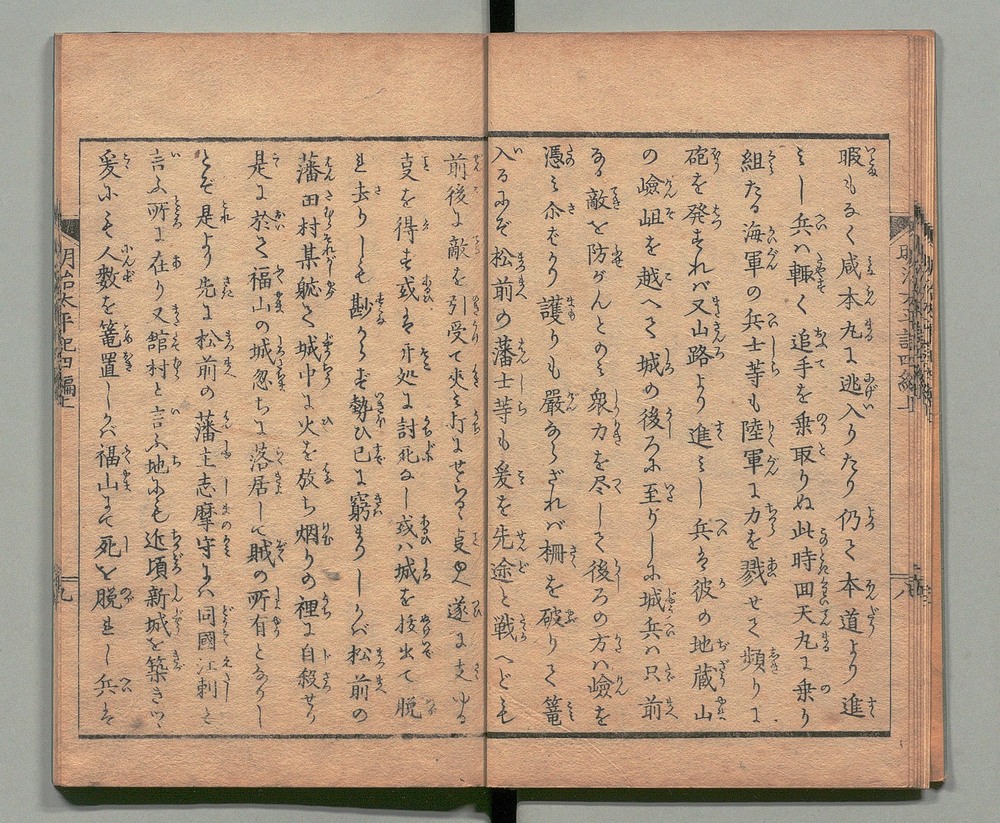 暇もなく咸本丸に逃入りたり仍て本道より進
みし兵ハ輙く追手を乗取りぬ此時回天丸に乗り
組たる海軍の兵士等も陸軍に力を戮せて頻りに
砲を発すれバ又山路より進みし兵は彼の地蔵山
の嶮岨を越へて城の後ろに至りしに城兵ハ只前
なる敵を防がんとのみ衆力を尽して後ろの方ハ嶮を
憑み余をり護りも嚴ならざれバ柵を破りて篭
入るにぞ松前の藩士等も爰を先途と戦へども
前後に敵を引受て夾み打にせらるゝ遂に支ゆる
支を得ず或は其処に討死なし或ハ城を抜出て脱
れ去りしも尠からず勢ひ已に窮まりしかバ松前の
藩田村某舩て城中に火を放ち烟りの裡に自殺せり
是に於て福山の城忽ちに落居して賊の所有となりし
とぞ是より先に松前の藩主志摩守にハ同國江刺と
言ふ所に在り又舘村と言ふ地にも近頃新城を築きいて
爰にも人数を篭置しかバ福山にて死を脱れし兵は
明治太平記四編上
九